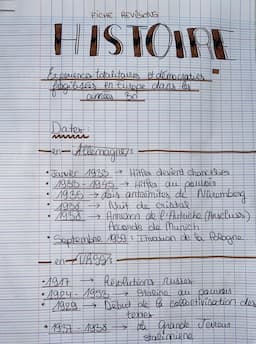 FICHE REVISIONS
HISTOIRE
Expériences totalitaires et démocraties
fragilisées en Europe dans les
années 30
Dates
en Allemagne :
• Janvier 1933 → Hitler devient chancelier
• 1933 - 1945 → Hitler au pouvoir
• 1935 → lois antisémites de Nuremberg
• 1938 → Nuit de cristal
• 1938 → Annexion de l'Autriche (Anschluss)
Accords de Munich
• Septembre 1939 : Invasion de la Pologne
en URSS :
• 1917 → Révolutions russes
• 1924 - 1953 → Staline au pouvoir
• 1929 → Début de la collectivisation des
terres
• 1937 - 1938 → la Grande Terreur
stalinienne